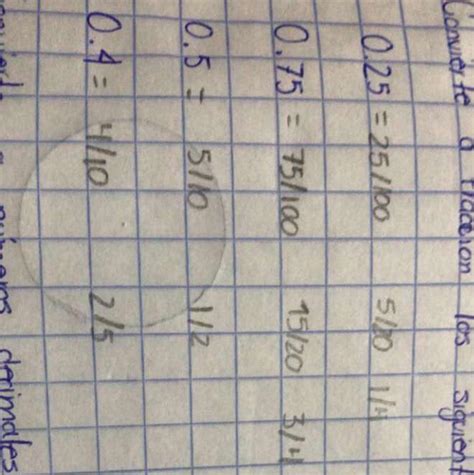 Convierte a fracción los siguient
0.25 = 25/100 5/20 1/4
0.75 = 75/100 15/20 3/4
0.5 = 5/10 1/2
0.4 = 4/10 2/5
a números decimales